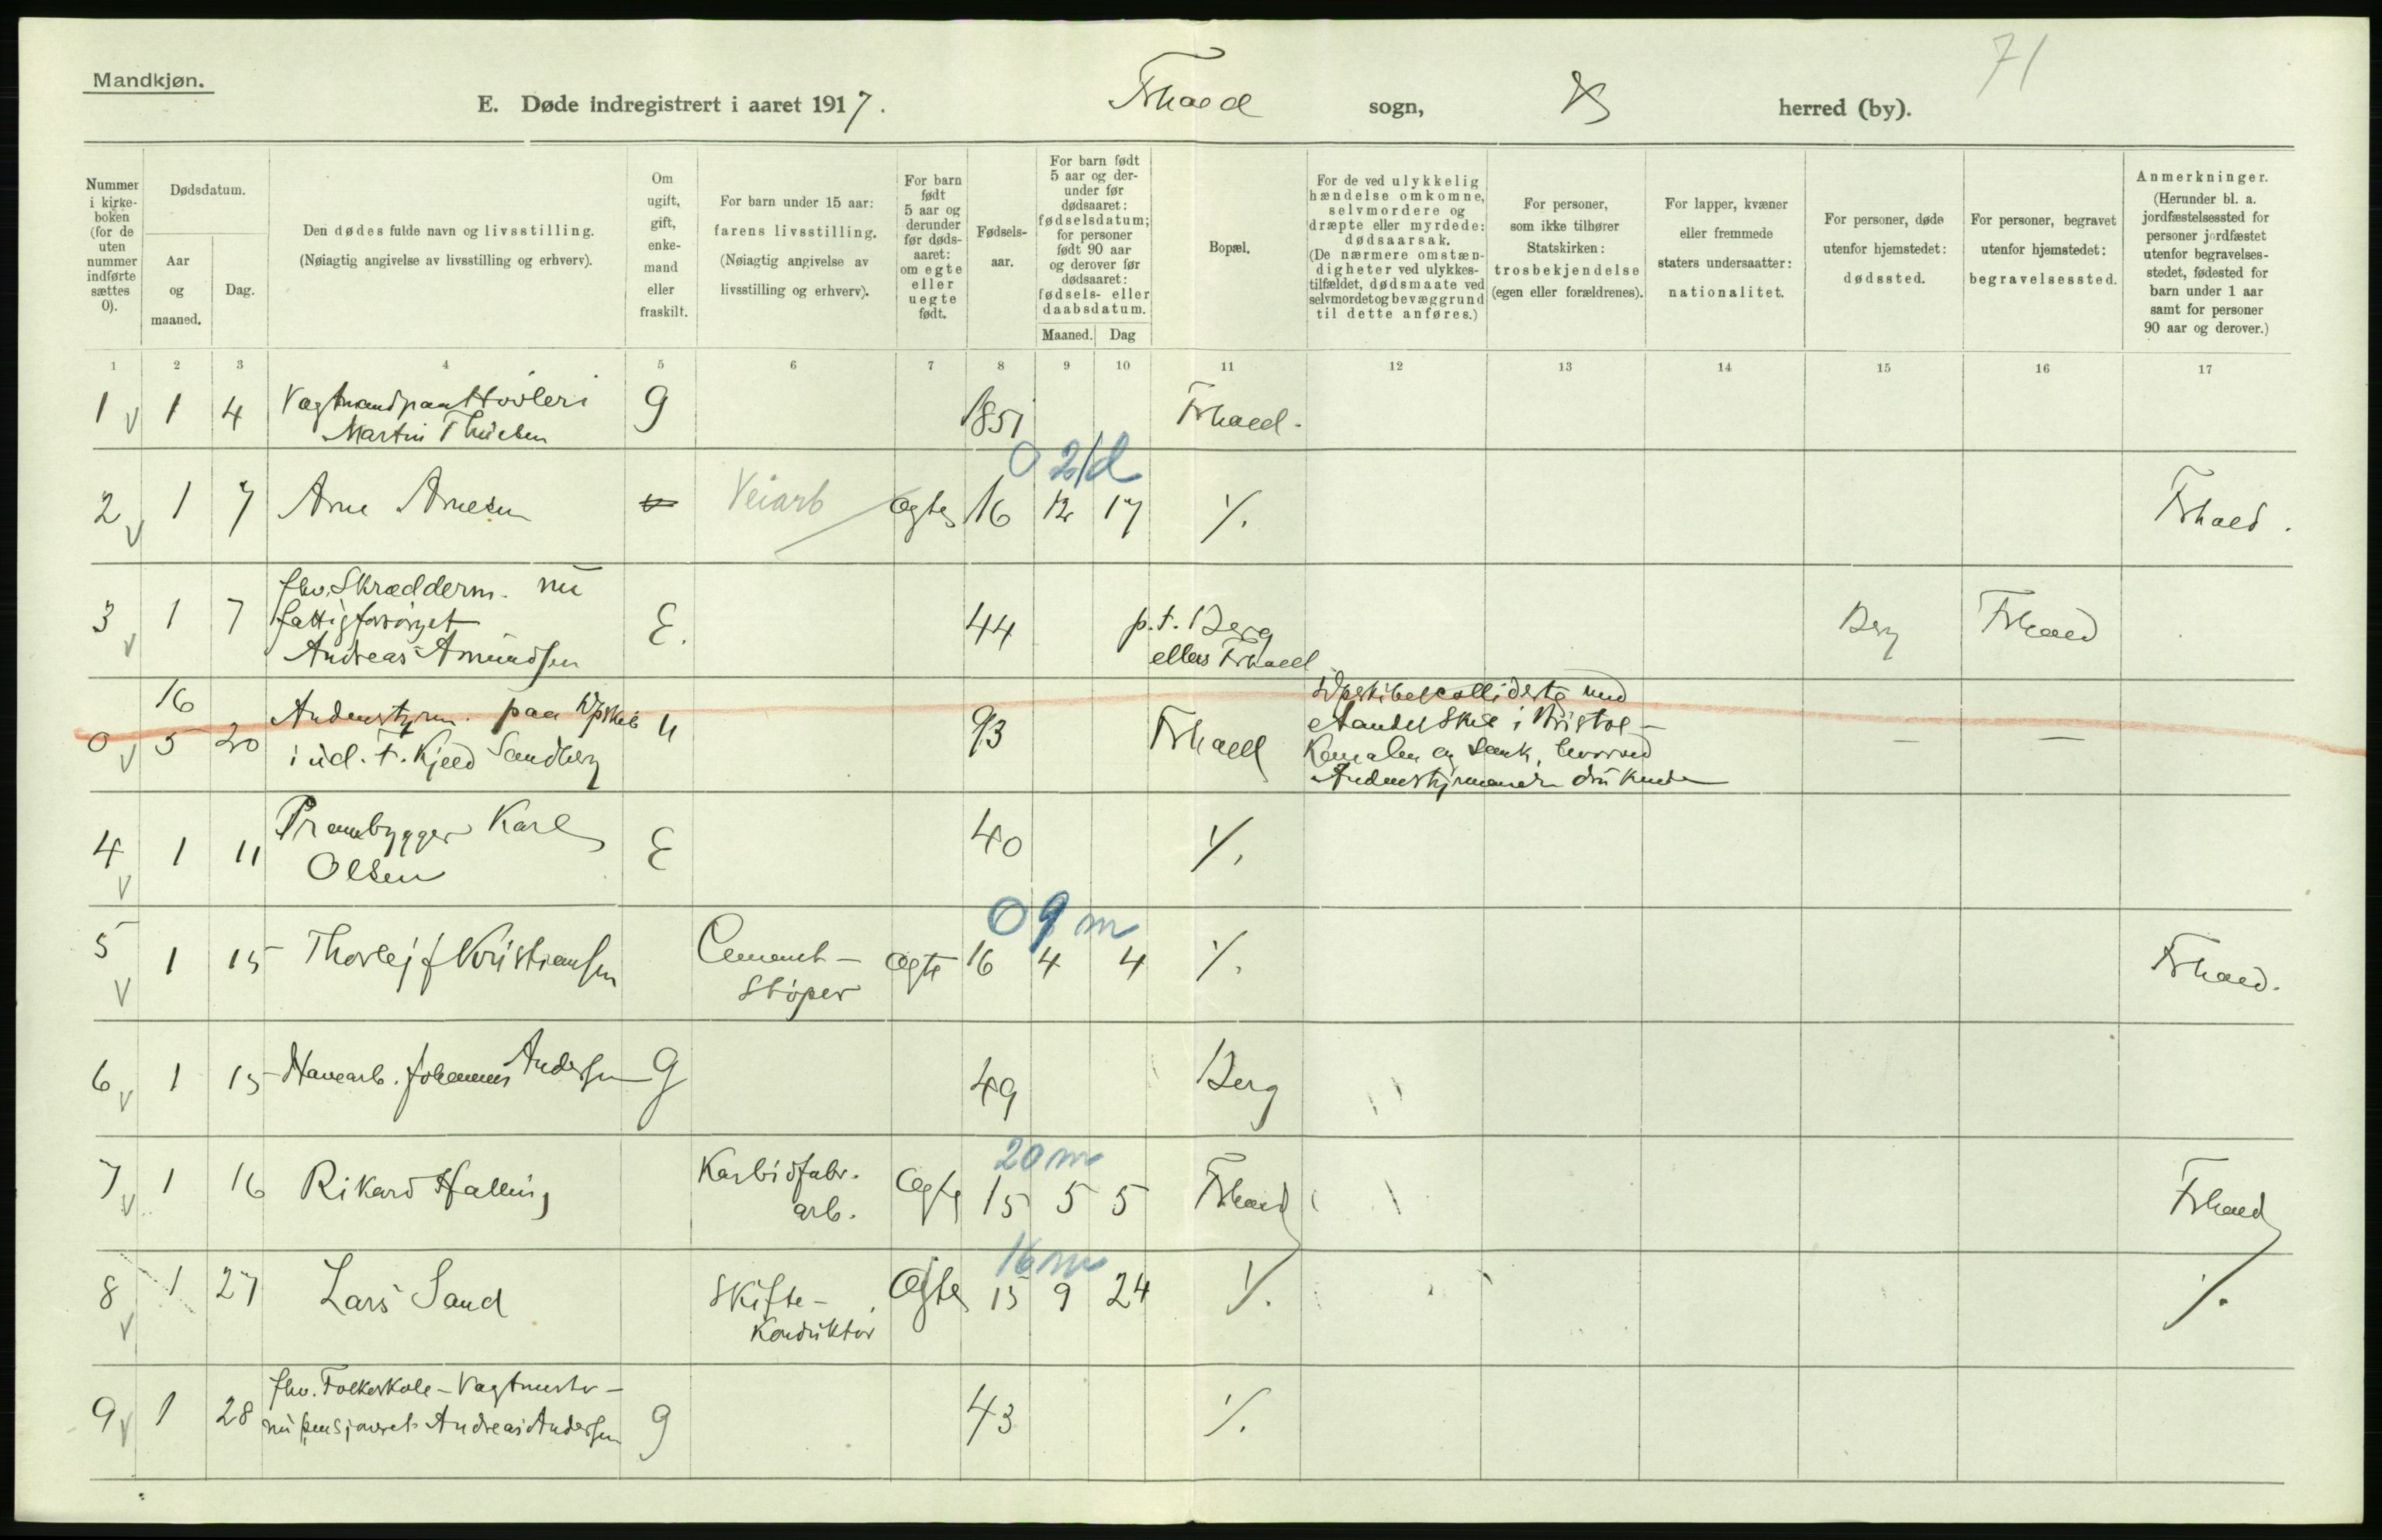 71
Mandkjøn.
E. Døde indregistrert i aaret 1917. Frhald sogn, herred (by).
Nummer i kirkeboken (for de uten nummer indførte sættes 0).
Dødsdatum.
Aar og maaned.
Dag.
Den dødes fulde navn og livsstilling.
(Nøiagtig angivelse av livsstilling og erhverv).
Om ugift, gift, enkemand eller fraskilt.
For barn under 15 aar:
farens livsstilling.
(Nøiagtig angivelse av
livsstilling og erhverv).
For barn født 5 aar og derunder før dødsaaret: om egte eller uegte født.
Fødselsaar.
For barn født 5 aar og derunder før dødsaaret: fødselsdatum; for personer født 90 aar og derover før dødsaaret: fødsels- eller daabsdatum.
Maaned. Dag
Bopæl.
For de ved ulykkelig hændelse omkomne, selvmordere og dræpte eller myrdede: dødsaarsak. (De nærmere omstændigheter ved ulykkestilfældet, dødsmaate ved selvmordet og bevæggrund til dette anføres.)
For personer, som ikke tilhører Statskirken: trosbekjendelse (egen eller forældrenes).
For lapper, kvæner eller fremmede staters undersaatter: nationalitet.
For personer, døde utenfor hjemstedet: dødssted.
For personer, begravet utenfor hjemstedet: begravelsessted.
Anmerkninger.
(Herunder bl. a. jordfæstelsessted for personer jordfæstet utenfor begravelsesstedet, fødested for barn under 1 aar samt for personer 90 aar og derover.)
1 2 3 4 5 6 7 8 9 10 11 12 13 14 15 16 17
1 1 4 Vagtmand paa Hvaleri g 1851 Frhald.
Martin Thüesen
0 21d
2 1 7 Arne Arnesen Veiarb Ægte 16 12 17 Frhald.
3 1 7 fhv. Skrædderm. nu fattigforsörget Andreas Amundsen E. 44 p.t. Berg ellers Frhald Berg Frhald
0 16 5 20 Andenstyrm. paa Dpskib i ud. f. Kjeld Sandberg u 93 Frhald
Dpskibet kolliderte med
et andet Skib i Bristol-
Kanalen og sank, hvorved
Andenstyrmanden druknede
4 1 11 Prambygger Karl Olsen E 40
09 m
5 1 15 Thorlejf Kristiansen Cement-støper Ægte 16 4 4 Frhald.
6 1 15 Havearb. Johannes Andersen g 49 Berg
20 m
7 1 16 Rikard Halling Karbidfabr. arb. Ægte 15 5 5 Frhald Frhald
16 m
8 1 27 Lars Sand Skifte-Konduktør Ægte 15 9 24
9 1 28 fhv. Folkeskole-Vagtmester- nu pensjoneret Andreas Andersen g 43